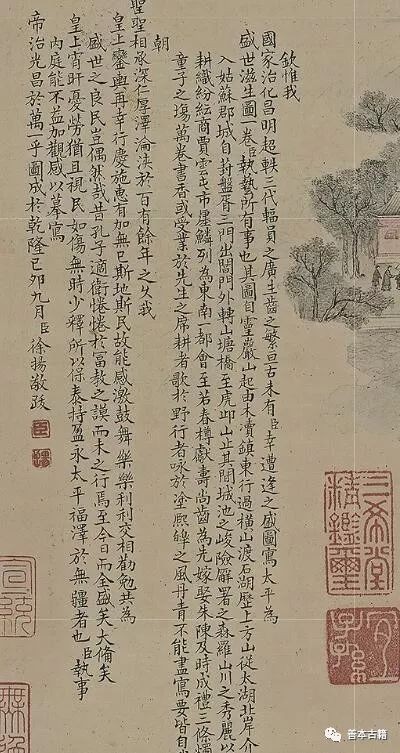 欽惟我
國家治化昌明超軼三代輻員之廣生齒之繁亘古未有臣幸遭逢之盛圖寫太平為
盛世滋生圖一卷臣執藝所有事也其圖自靈巖山起由木瀆鎮東行過橫山渡石湖歷上方山從太湖北岸介
入姑蘇郡城自葑盤胥三門出閶門外轉山塘橋至虎邱山止其間城池之峻險廨署之森羅山川之秀麗以
耕織紛紜商賈雲屯市廛鱗列為東南一都會至若春樽獻壽尚齒為先嫁娶朱陳及時成禮三條燭
童子之場萬卷書香或受業於先生之席耕者歌於野行者咏於塗熙皞之風丹青不能盡寫要皆自
朝
聖聖相承深仁厚澤淪浹於百有餘年之久我
皇上鑾輿再幸行慶施惠有加無已斯地斯民故能感激鼓舞樂樂利利交相勸勉共為
盛世之良民豈偶然哉昔孔子適衛惓惓於富教之謨而未之行焉至今日而全盛矣大備矣
皇上宵旰憂勞猶且視民如傷無時少釋所以保泰持盈永太平福澤於無疆者也臣執事
內庭能不益加觀感以摹寫
帝治光昌於萬一乎圖成於乾隆己卯九月臣徐揚敬跋
臣
揚
三希堂精鑑璽
宜子孫
宣統
無逸
善本古籍